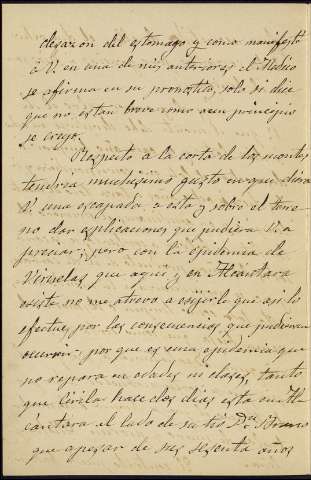 desazon del estomago y como manifesté
á V. en una de mis anteriores el Medico
se afirma en su pronostico, solo si dice
que no es tan breve como en un principio
se creyo.
Respecto a la corta de los montes
tendria muchisimo gusto en que diera
V. una escapada a esta y sobre el terre
no dar esplicaciones que pudiera V. a
preciar; pero con la epidemia de
Viruelas que aqui y en Alcántara
existe no me atrevo a exijirle que asi lo
efectue, por las consecuencias que pudieran
ocurrir. por que es una epidemia que
no repara en edades ni clases, tanto
que Cirila hace dos dias esta en Al
cantara al lado de su tio Dn Bruno
que apesar de sus sesenta años